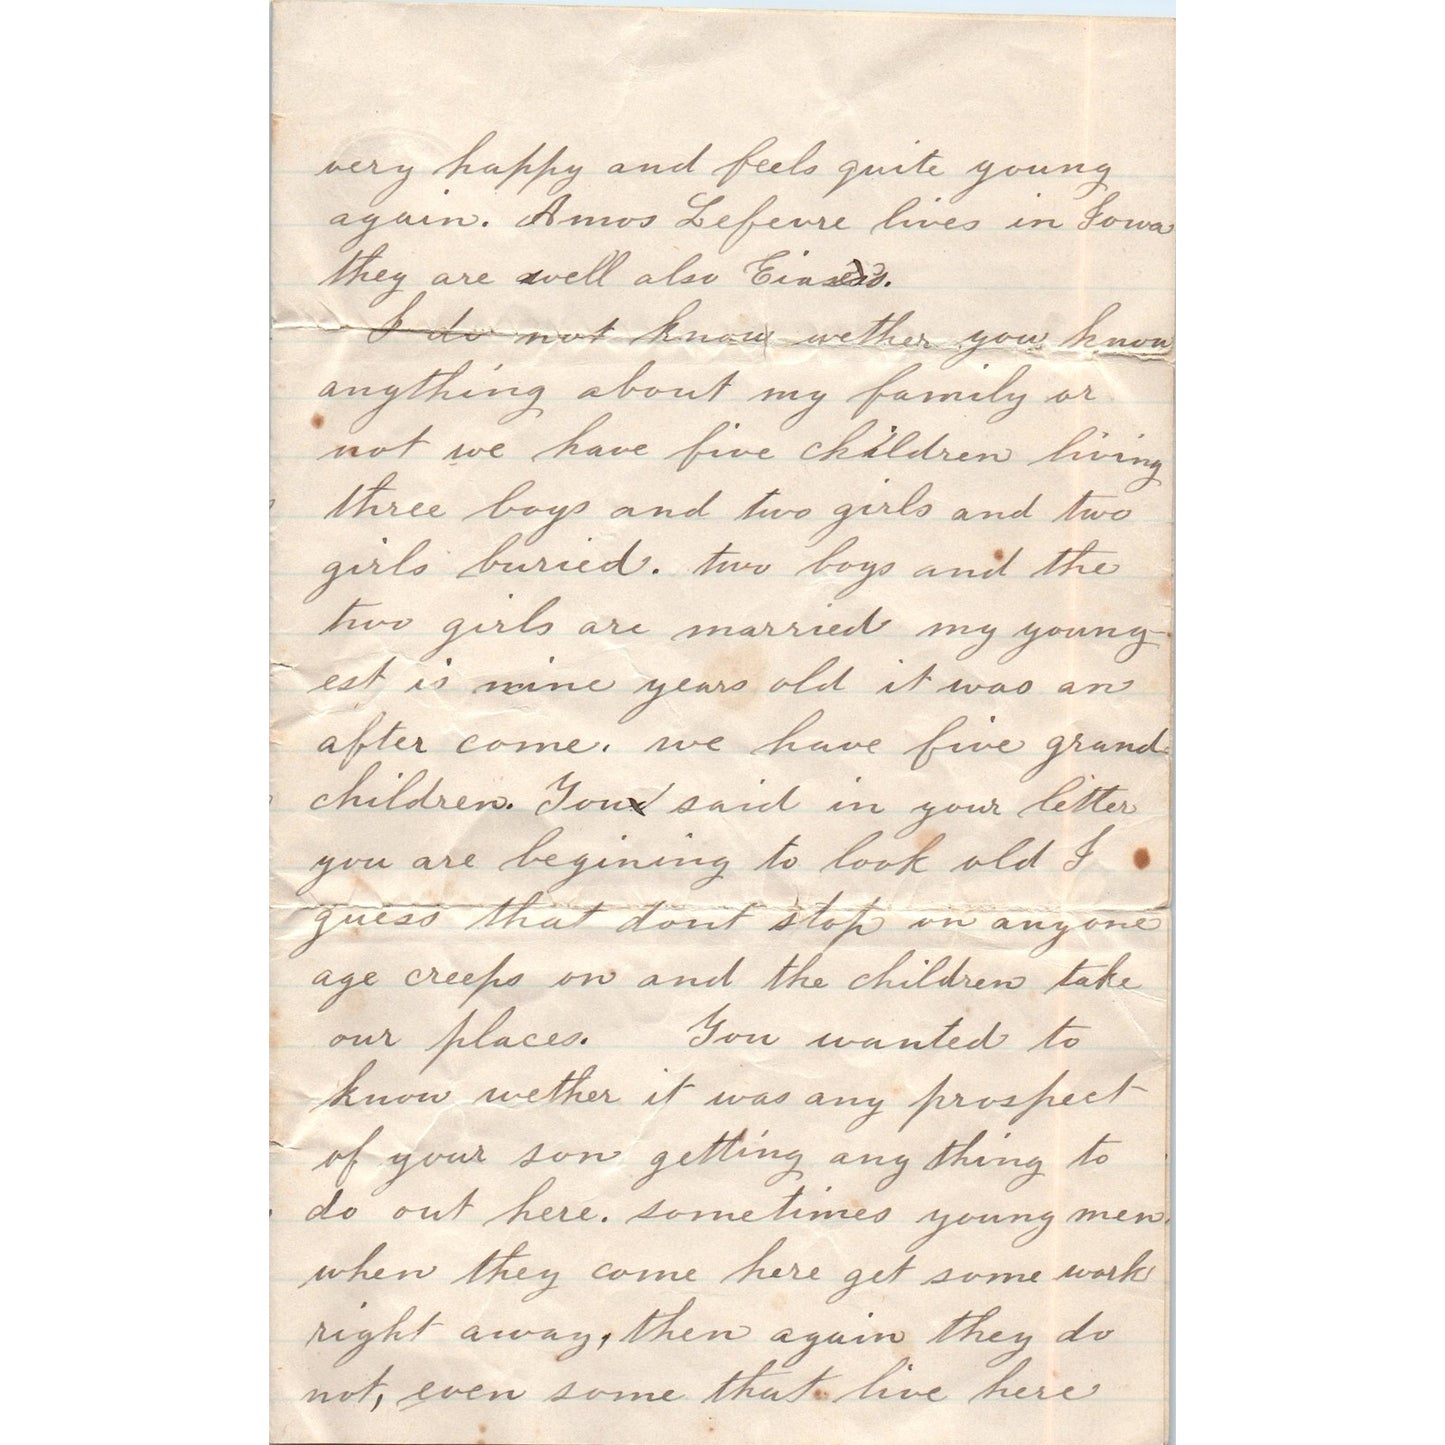 very happy and feels quite young
again. Amos Lefevre lives in Iowa
they are well also
I do not know wether you know
anything about my family or
not we have five children living
three boys and two girls and two
girls buried. two boys and the
two girls are married my young-
est is nine years old it was an
after come. we have five grand
children. You said in your letter
you are begining to look old I
guess that dont stop on anyone
age creeps on and the children take
our places. You wanted to
know wether it was any prospect
of your son getting any thing to
do out here. sometimes young men
when they come here get some work
right away, then again they do
not, even some that live here